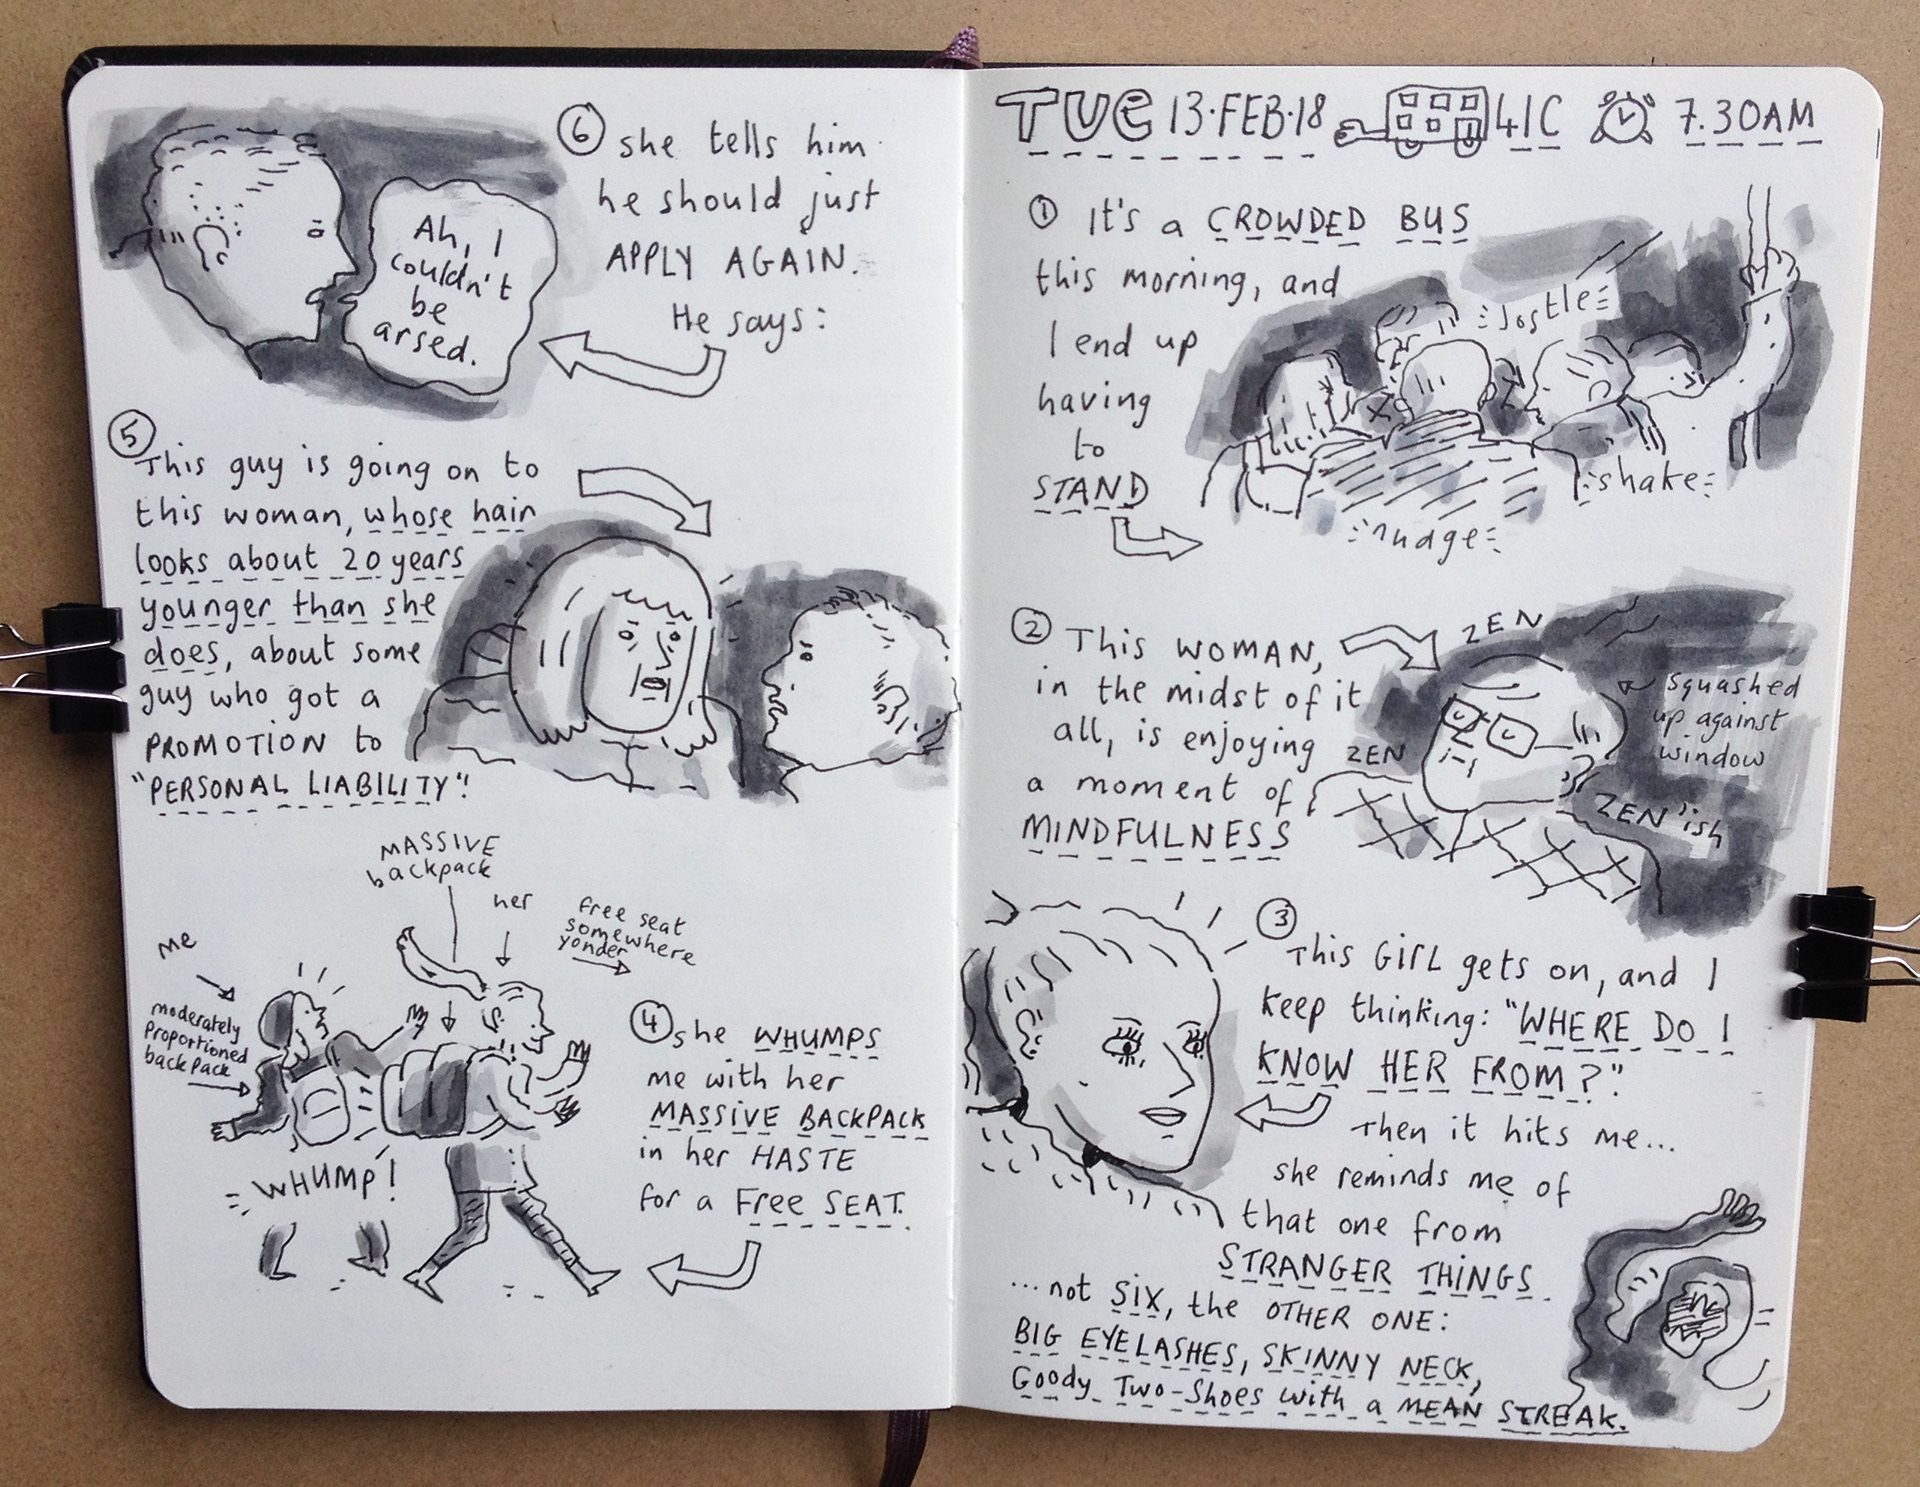 TUE 13·FEB·18 41C 7.30AM
① It's a CROWDED BUS
this morning, and
I end up
having
to
STAND
jostle
shake
nudge
② This WOMAN,
in the midst of it
all, is enjoying
a moment of
MINDFULNESS
ZEN
ZEN
ZEN'ish
squashed
up against
window
③ This GIRL gets on, and I
keep thinking: "WHERE DO I
KNOW HER FROM?"
Then it hits me...
she reminds me of
that one from
STRANGER THINGS.
...not SIX, the OTHER ONE:
BIG EYELASHES, SKINNY NECK,
Goody Two-Shoes with a MEAN STREAK.
④ she WHUMPS
me with her
MASSIVE BACKPACK
in her HASTE
for a Free SEAT.
MASSIVE
backpack
her
free seat
somewhere
yonder
me
moderately
proportioned
backpack
WHUMP!
⑤ This guy is going on to
this woman, whose hair
looks about 20 years
younger than she
does, about some
guy who got a
PROMOTION to
"PERSONAL LIABILITY"!
⑥ she tells him
he should just
APPLY AGAIN.
He says:
Ah, I
couldn't
be
arsed.